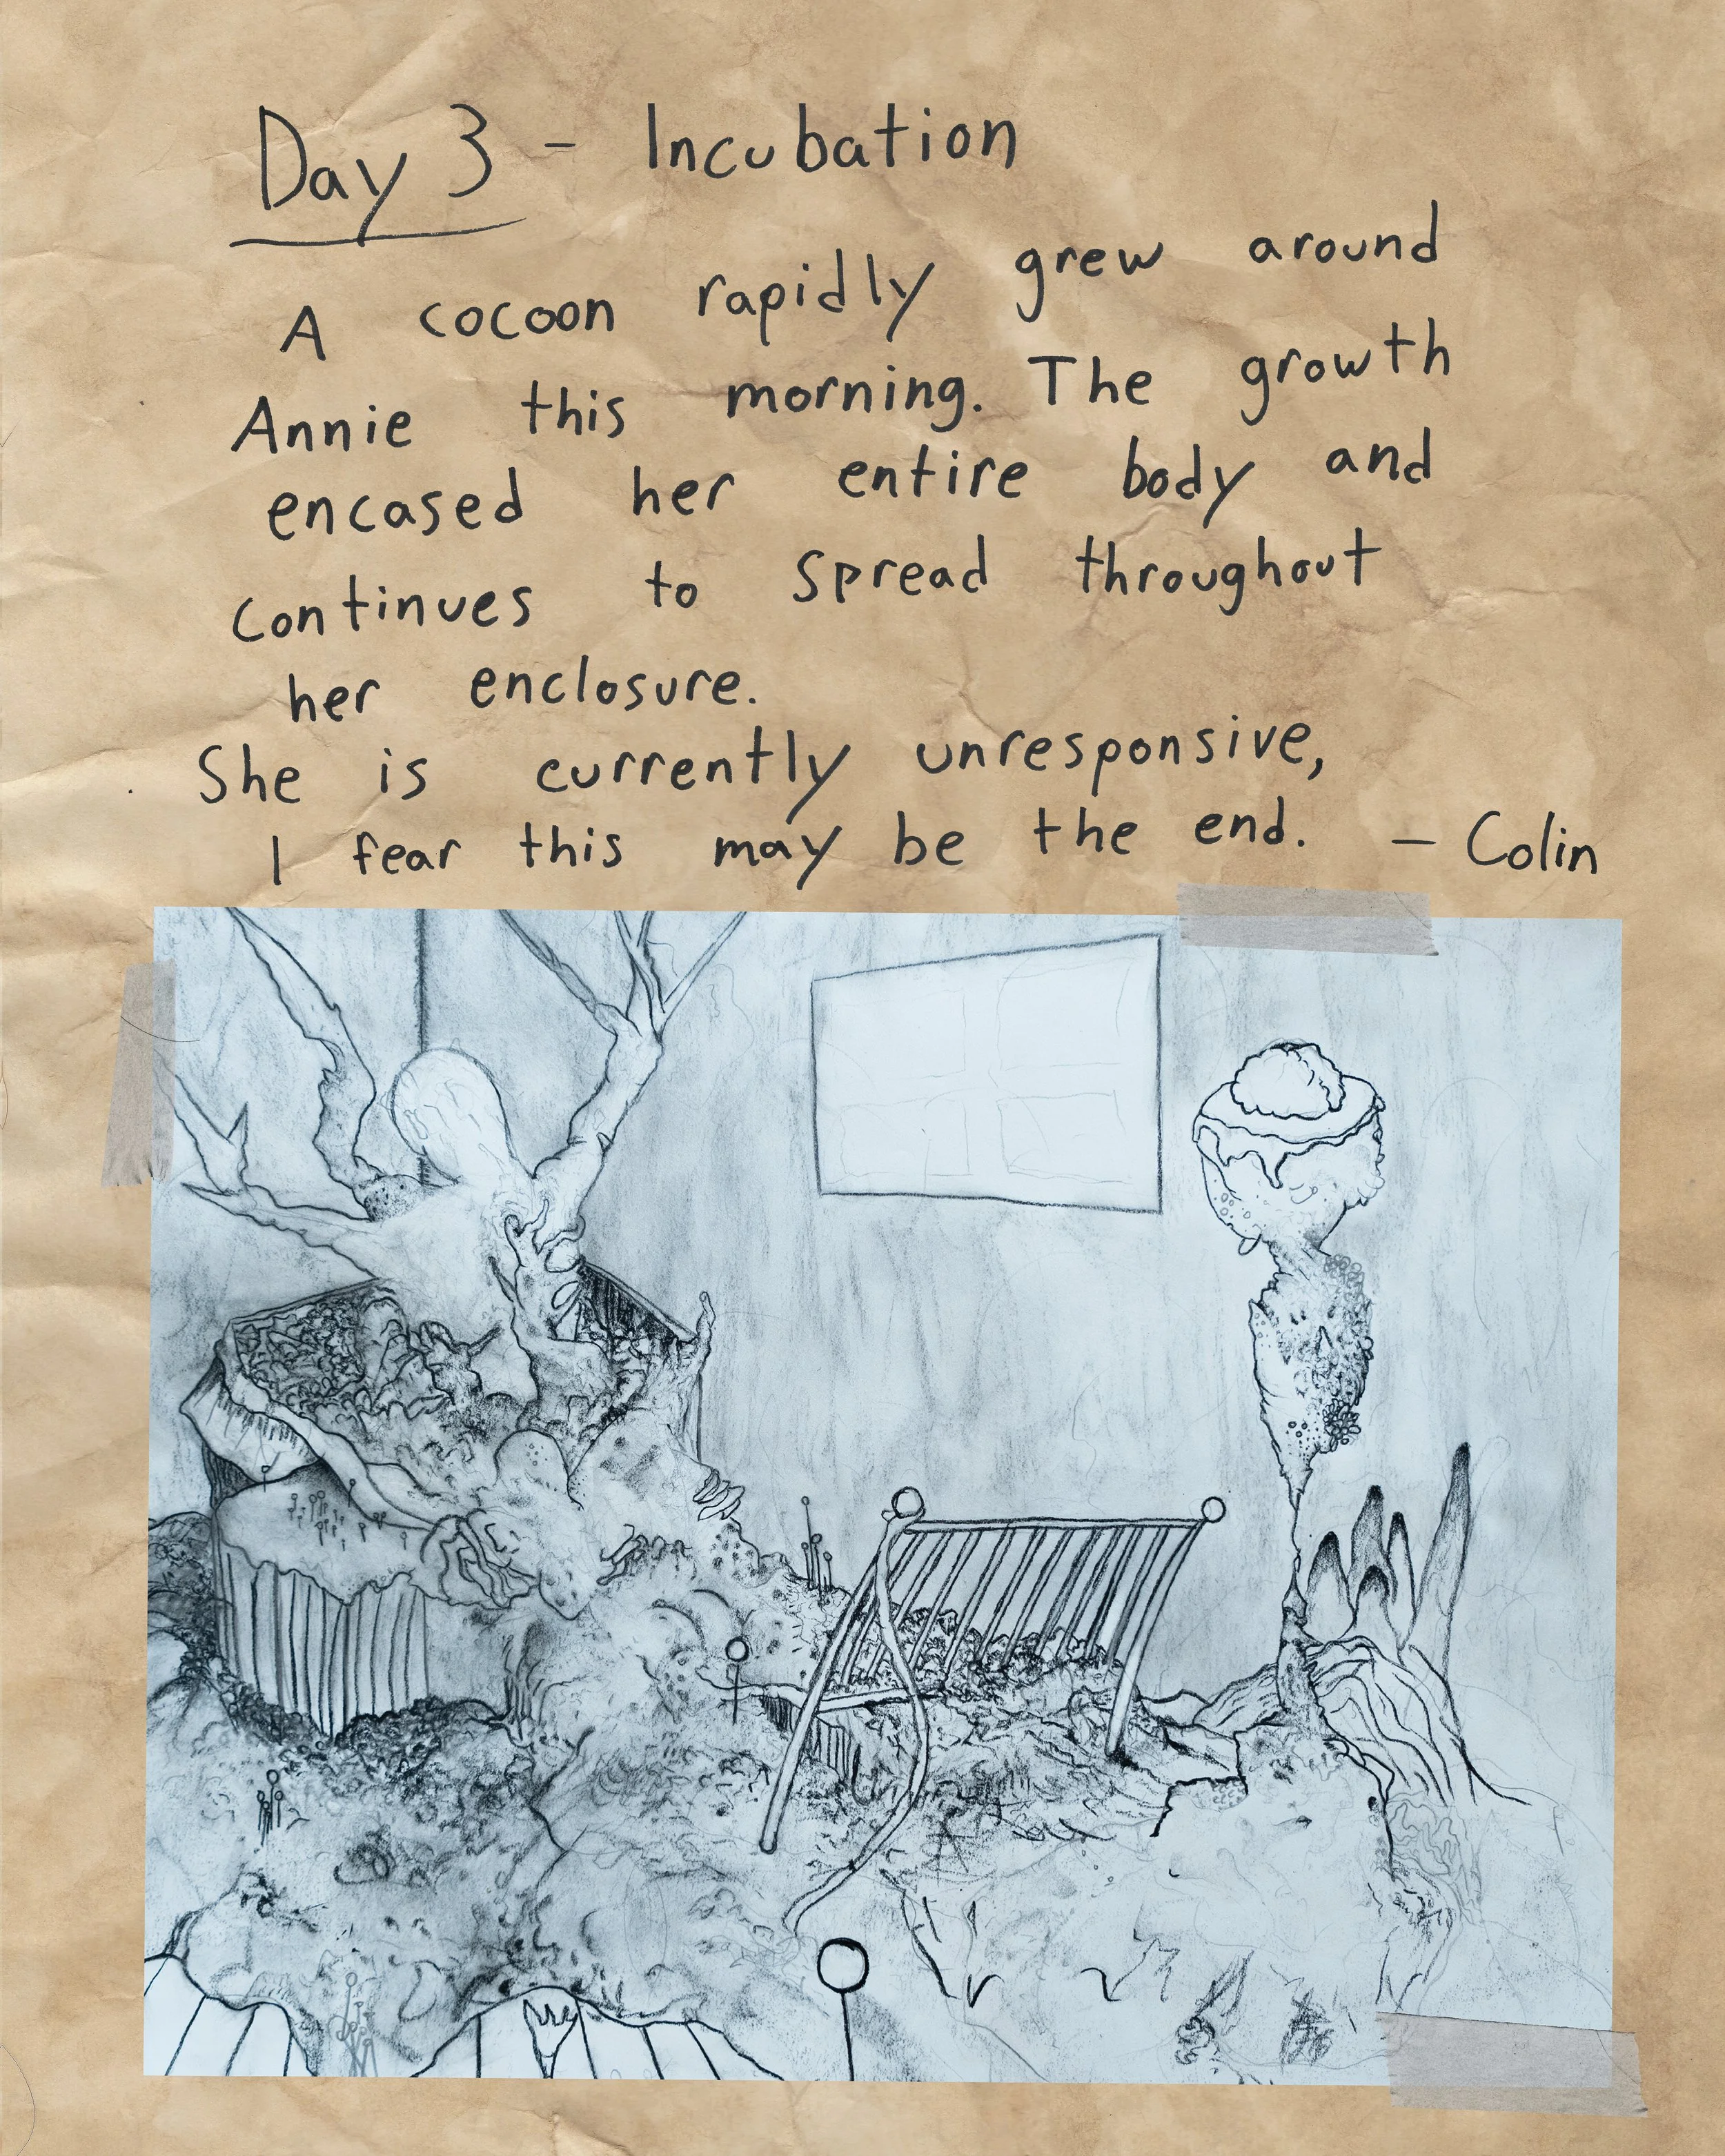 Day 3 - Incubation
A cocoon rapidly grew around
Annie this morning. The growth
encased her entire body and
continues to spread throughout
her enclosure.
She is currently unresponsive,
I fear this may be the end. - Colin